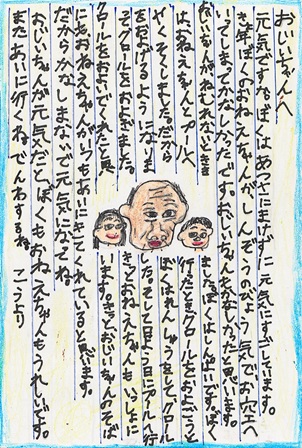 おじいちゃんへ
元気ですか。ぼくはあつさにまけずに元気にすごしています。
きょ年ぼくのおねえちゃんがしんぞうのびょう気でお空へ
いってしまってかなしかったです。おじいちゃんもかなしかったと思います。
おじいちゃんがねむれないときき ました。ぼくはしんぱいです。ぼく
はおねえちゃんとプールへ 行ったときクロールをおよごうと
やくそくしました。だから ぼくはれんしゅうをしてクロール
をおよげるようになりま した。そして日よう日にプールへ行
ってクロールをおよぎました。 きっとおねえちゃんもいっしょに
クロールをおよいでくれたと思 います。きっと、おじいちゃんのそば
にもおねえちゃんがいつもあいにきてくれていると思います。
だからかなしまないで元気になってね
おじいちゃんが元気だとぼくもおねえちゃんもうれしいです。
またあいに行くね でんわするね こうより